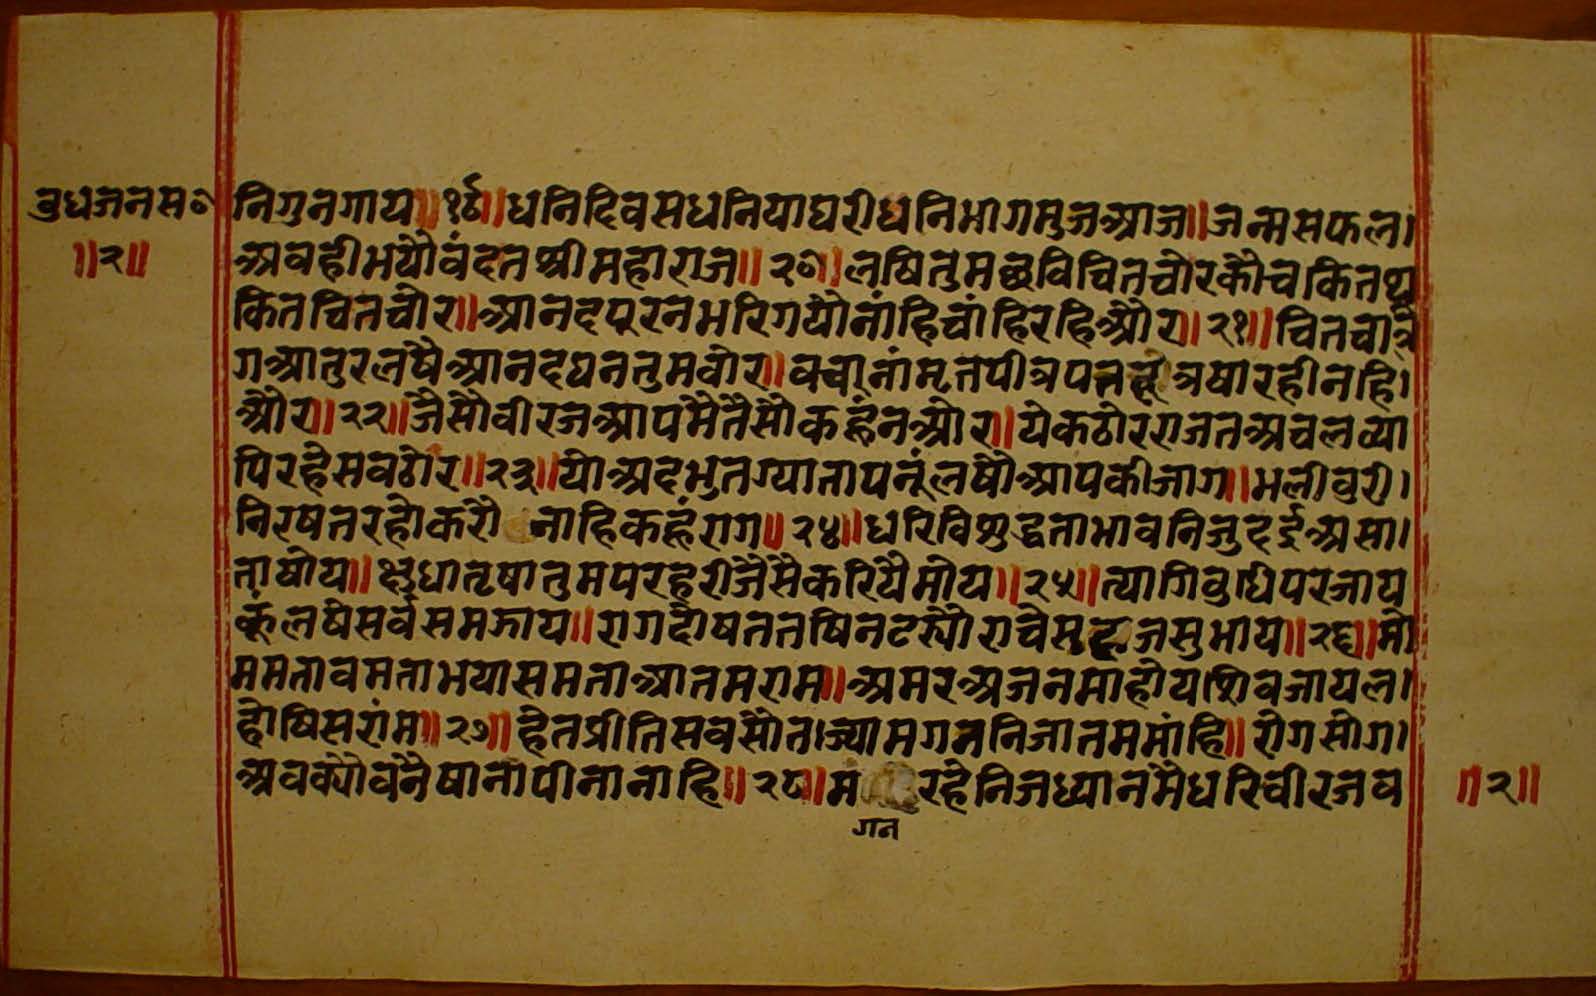 वुधजनस०
॥२॥
निगुनगाय॥१९॥धनिदिवसधनियाघरीधनिभागमुजआज॥जन्मसफल।
अवहीभयौवंदतश्रीमहाराज॥२०॥लषितुमछविचितचोरकौचकितथ
कितचितचोर॥आनदपूरनभरिगयौनांहिचांहिरहिऔर॥२१॥चितचात्रि
गआतुरलषैआनदघनतुमवोर॥वचनांमृतपीत्रपत त्रषारहीनहि।
और॥२२॥जैसौवीरजआपमैतैसौकहूंनओर॥येकठोरराजतअचलव्या
पिरहेसवठौर॥२३॥योअदभुतग्यातापनूंलषौआपकीजाग॥भलीवुरी।
निरषतरहोकरौ नाहिकहूंराग॥२४॥धरिविशुद्धताभावनिजुदईअसा।
ताषोय॥क्षुधातृषातुमपरहरीजैसैकरियैमोय॥२५॥त्यागिवुधिपरजाय
कूंलषेसर्वसमभाय॥रागदोषततषिनटस्यौराचेसहजसुभाय॥२६॥मो
ममतावमताभयासमताआतमराम॥अमरअजनमाहोयशिवजायल।
होविसरांम॥२७॥हेतप्रीतिसवसौतज्यामगननिजातममांहि॥रोगसोग।
अवक्यौवनैषानापीनानाहि॥२८॥म रहेनिजध्यानमैधरिवीरजव
गन
॥२॥